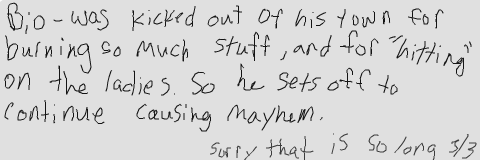 Bio - was kicked out of his town for
burning so much stuff, and for "hitting"
on the ladies. So he sets off to
continue causing mayhem.
sorry that is so long 3/3